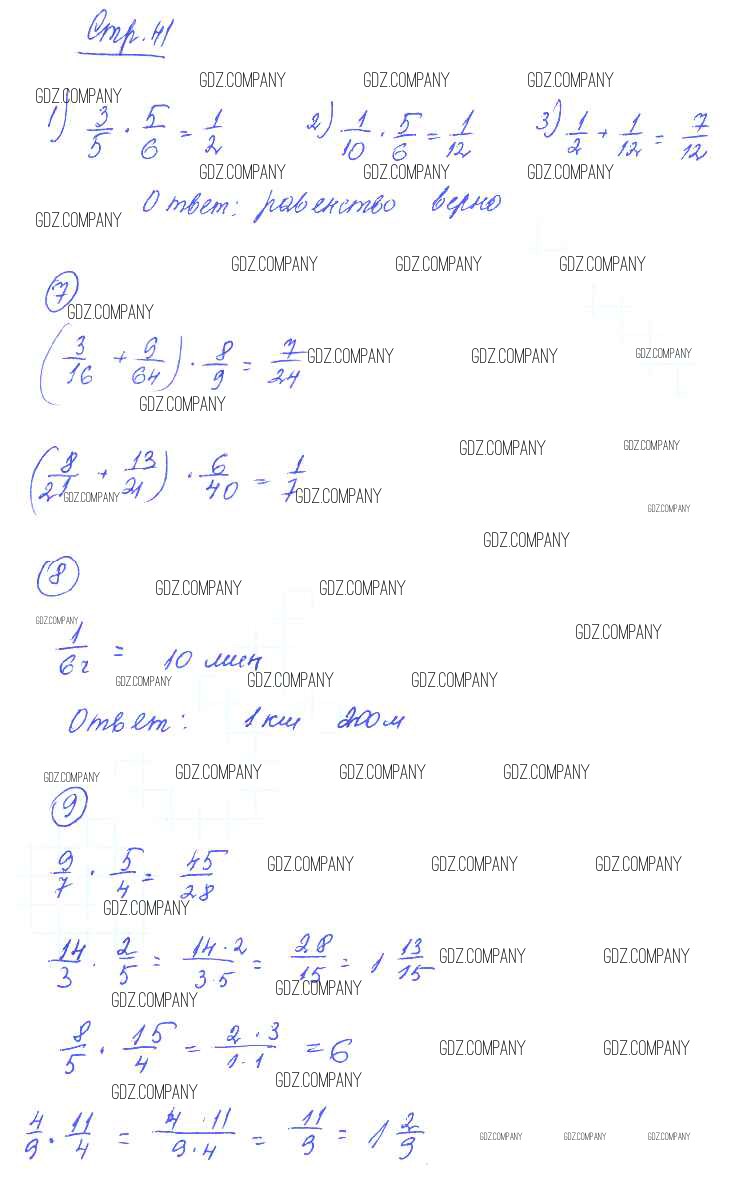 Стр. 41
GDZ.COMPANY GDZ.COMPANY GDZ.COMPANY GDZ.COMPANY
1) 3/5 · 5/6 = 1/2 2) 1/10 · 5/6 = 1/12 3) 1/2 + 1/12 = 7/12
GDZ.COMPANY GDZ.COMPANY GDZ.COMPANY
Ответ: равенство верно
GDZ.COMPANY
GDZ.COMPANY GDZ.COMPANY GDZ.COMPANY
7
GDZ.COMPANY
(3/16 + 9/64) · 8/9 = 7/24
GDZ.COMPANY GDZ.COMPANY GDZ.COMPANY
GDZ.COMPANY
GDZ.COMPANY GDZ.COMPANY
(8/21 + 13/21) · 6/40 = 1/7
GDZ.COMPANY GDZ.COMPANY GDZ.COMPANY
GDZ.COMPANY
8
GDZ.COMPANY GDZ.COMPANY
GDZ.COMPANY GDZ.COMPANY
1/6ч = 10 мин
GDZ.COMPANY GDZ.COMPANY GDZ.COMPANY
Ответ: 1 км 200 м
GDZ.COMPANY GDZ.COMPANY GDZ.COMPANY GDZ.COMPANY
9
9/7 · 5/4 = 45/28
GDZ.COMPANY GDZ.COMPANY GDZ.COMPANY
GDZ.COMPANY
14/3 · 2/5 = 14·2/3·5 = 28/15 = 1 13/15
GDZ.COMPANY GDZ.COMPANY
GDZ.COMPANY GDZ.COMPANY
8/5 · 15/4 = 2·3/1·1 = 6
GDZ.COMPANY GDZ.COMPANY
GDZ.COMPANY GDZ.COMPANY
4/9 · 11/4 = 4·11/9·4 = 11/9 = 1 2/9
GDZ.COMPANY GDZ.COMPANY GDZ.COMPANY